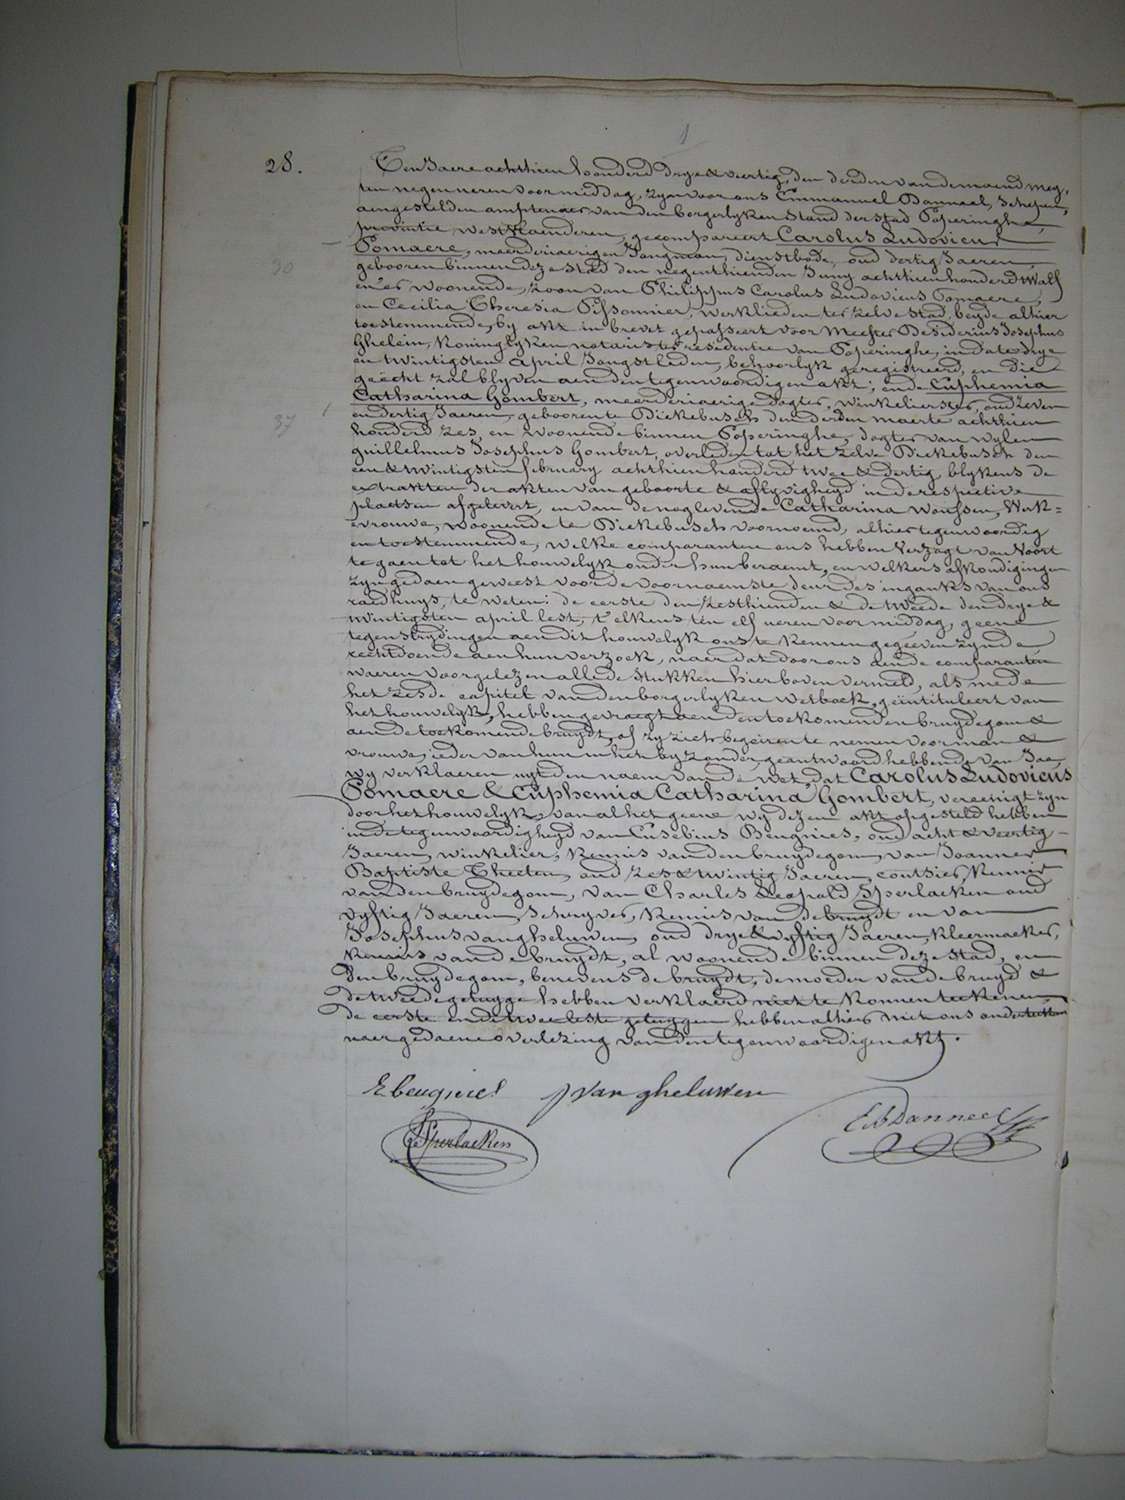 1
28. Ten Jaere achthien honderd drye & veertig, den derden van de maend mey,
ten negen ueren voormiddag, zyn voor ons Emmanuel Danneel, schepen,
aengestelden amptenaer van den borgerlyken stand der stad Poperinghe,
provintie westVlaenderen, gecompareert Carolus Ludovicus
Pomaere, meerderjaerigen Jongman, dienstbode, oud dertig Jaeren,
30 gebooren binnen deze stad den negenthienden Juny achthien honderd twalf
en er woonende, zoon van Philippus Carolus Ludovicus Pomaere,
en Cecilia Theresia Pissonnier, werklieden ter zelve stad, beyde alhier
toestemmende, by akt in brevet gepasseert voor Meester Desiderius Josephus
Ghelein, Koninglyken notaris ter residentie van Poperinghe, in date drye
en twintigsten April Jongstleden, behoorlyk geregistreerd, en die
geëcht zal blyven aen den tegenwoordigen akt; ende Euphemia
Catharina Gombert, meerderjaerige dogter, winkelierster, oud zeven
37 en dertig Jaeren, geboren te Dickebusch den derden maerte achthien
honderd zes, en woonende binnen Poperinghe, dogter van wylen
guillelmus Josephus Gombert, overleden tot het zelve Dickebusch den
een & twintigsten february achthien honderd twee & dertig, blykens de
extrakten der akten van geboorte & aflyvigheyd in de respective
plaetsen afgelevert, en van de naglevende Catharina Woussen, Werk=
vrouwe, woonende te Dickebusch voornoemd, alhier tegenwoordig
en toestemmende, welke comparanten ons hebben Verzogt van Voort
te gaen tot het houwelyk onder hun beraemt, en welkers afkondigingen
zyn gedaen geweest voor de voornaemste deur des ingangs van ons
raedhuys, te weten: de eerste den zesthienden & de tweede den drye &
twintigsten april lest, t'elkens ten elf ueren voormiddag, geene
tegenstrydingen aen dit houwelyk ons te kennen gegeven zynde,
rechtdoende aen hun verzoek, naer dat door ons aen de comparanten
waeren voorgelezen alle de stukken hier boven vermeld, als mede
het zesde capitel van den borgerlyken wetboek, geïntituleert van
het houwelyk, hebben gevraegt aen den toekomenden bruydegom &
aen de toekomende bruydt, of zy zich begeiren te nemen voor man &
vrouwe; ieder van hun in het byzonder geantwoord hebbende van Jae,
wy verklaeren uyt den naem van de wet, dat Carolus Ludovicus
Pomaere & Euphemia Catharina Gombert, vereenigt zyn
door het houwelyk; van al het geene wy dezen akt opgesteld hebben
in de tegenwoordigheyd van Eusebius Beugnies, oud acht & veertig
Jaeren, winkelier, Kennis van den bruydegom, van Joannes
Baptiste Theeten, oud zes & twintig Jaeren, coutsier, Kennis
van den bruydegom, van Charles Leopold Sperlaeken oud
vyftig Jaeren, Schryver, Kennis van de bruydt en van
Josephus van gheluwen, oud drye & vyftig Jaeren, kleermaeker,
Kennis van de bruydt, al woonende binnen deze stad, en
den bruydegom, benevens de bruydt, de moeder van de bruyd &
de tweede getuyge hebben verklaerd niet te konnen teekenen,
de eerste en de twee leste getuygen hebben alhier met ons onderteekend
naer gedaene overlezing van den tegenwoordigen akt.
E beugnies J van gheluwen
Sperlaeken
Em Danneel